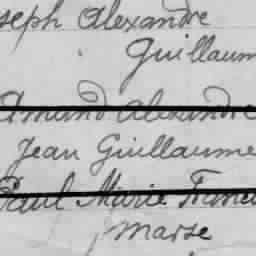 seph Alexandre
Guillaum
Amand Alexandre
Jean Guillaume
Paul Marie Franc
marse